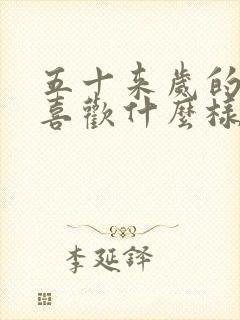 五十来歲的
喜歡什麼樣
李延譯